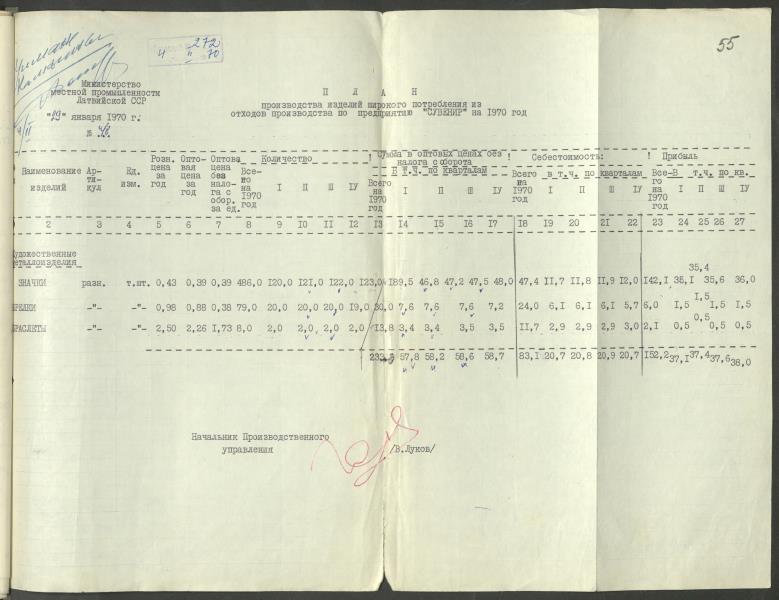 55
4 " 272
70
Министерство
местной промышленности
Латвийской ССР
"29" января 1970 г.
№
П Л А Н
производства изделий широкого потребления из
отходов производства по предприятию "СУВЕНИР" на 1970 год
Наименование изделий Ар-ти-кул Ед. изм. Розн. цена за год Опто-вая цена за год Оптова цена без нало-га с обор. за ед. Количество Все-го на 1970 год I П Ш IУ Сумма в оптовых ценах без налога с оборота Всего на 1970 год В т.ч. по кварталам I П Ш IУ Себестоимость: Всего на 1970 год в т.ч. по кварталам I П Ш IУ Прибыль Все-го на 1970 год В т.ч. по кв. I П Ш IУ
2 3 4 5 6 7 8 9 10 11 12 13 14 15 16 17 18 19 20 21 22 23 24 25 26 27
удожественные
еталлоизделия
35,4
ЗНАЧКИ разн. т.шт. 0,43 0,39 0,39 486,0 120,0 121,0 122,0 123,0 189,5 46,8 47,2 47,5 48,0 47,4 11,7 11,8 11,9 12,0 142,1 35,1 35,6 36,0
1,5
РЕЛКИ -"- -"- 0,98 0,88 0,38 79,0 20,0 20,0 20,0 19,0 30,0 7,6 7,6 7,6 7,2 24,0 6,1 6,1 6,1 5,7 6,0 1,5 1,5 1,5
0,5
РАСЛЕТЫ -"- -"- 2,50 2,26 1,73 8,0 2,0 2,0 2,0 2,0 13,8 3,4 3,4 3,5 3,5 11,7 2,9 2,9 2,9 3,0 2,1 0,5 0,5 0,5
57,8 58,2 58,6 58,7 83,1 20,7 20,8 20,9 20,7 152,2 37,1 37,4 37,6 38,0
Начальник Производственного
управления /В.Луков/